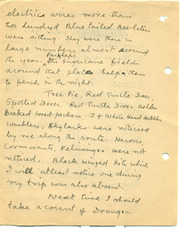 electric wires more than
50 hundred Blue tailed Bee-eaters
were sitting. They were there in
large numbers almost around
the year. Perhaps the sugarcane fields
around that place helps them
to perch in the night.
Tree Pie, Red Turtle Dove,
Spotted Dove, Red Turtle Dove, Golden
Backed Wood pecker,
warblers, Skylarks were noticed
by me along the route. Herons,
Cormorants, were not
noticed. Black winged Kite which
I will atleast notice one during
my trip was also absent.
Next time I should
take a count of Drongos.